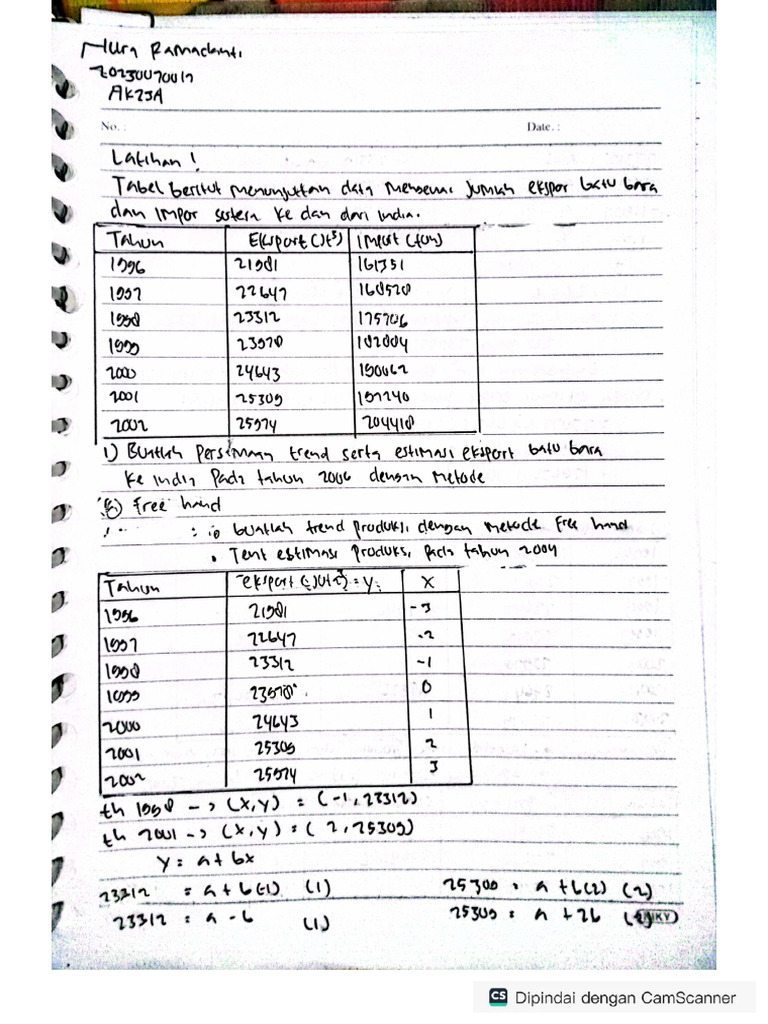 Nura Ramadanti
20230070017
AK23A
No. :
Date. :
Latihan !
Tabel berikut menunjukkan data mengenai jumlah ekspor batu bara
dan impor sutera ke dan dari india.
Tahun Eksport (Jt³) Import (ton)
1996 21981 161351
1997 22647 168528
1998 23312 175706
1999 23978 182884
2000 24643 190062
2001 25309 197240
2002 25974 204418
1) Buatlah Persamaan trend serta estimasi eksport batu bara
ke India Pada tahun 2006 dengan metode
Free hand
: buatlah trend produksi dengan metode Free hand
• Tent estimasi Produksi Pada tahun 2004
Tahun eksport = Y X
1996 21981 -3
1997 22647 -2
1998 23312 -1
1999 23978 0
2000 24643 1
2001 25309 2
2002 25974 3
th 1998 -> (x,y) = (-1, 23312)
th 2001 -> (x,y) = (2, 25309)
Y = a + bx
23312 = a + b(-1) (1) 25309 = a + b(2) (2)
23312 = a - b (1) 25309 = a + 2b
KIKY
CS Dipindai dengan CamScanner